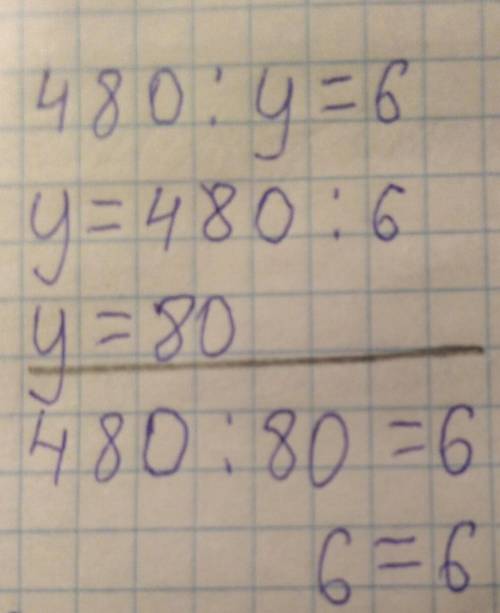 480 : y = 6
y = 480 : 6
y = 80
480 : 80 = 6
6 = 6